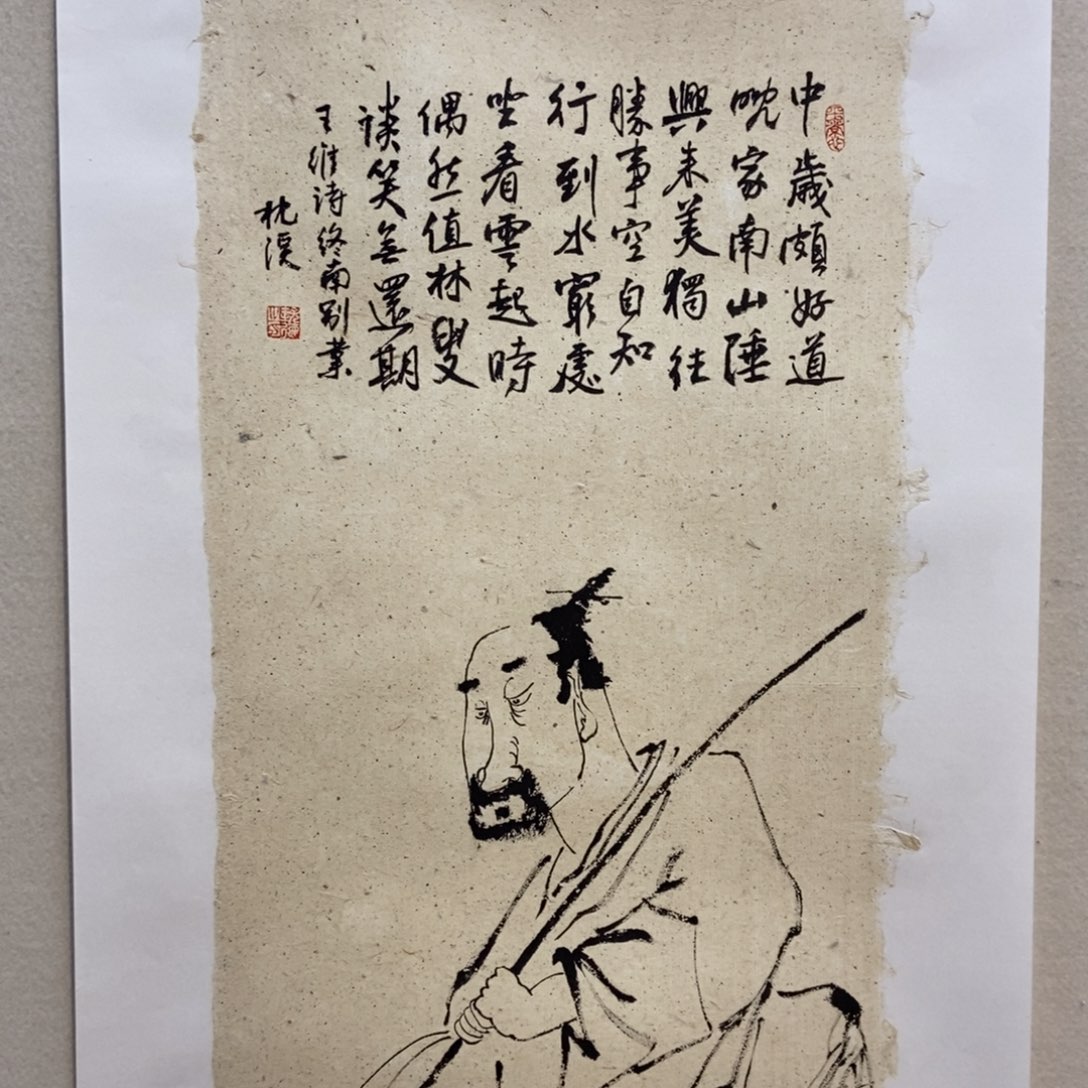 中歲頗好道
晚家南山陲
興来美獨往
勝事空自知
行到水窮處
坐看雲起時
偶然值林叟
談笑無還期
王維诗终南别業
枕溪